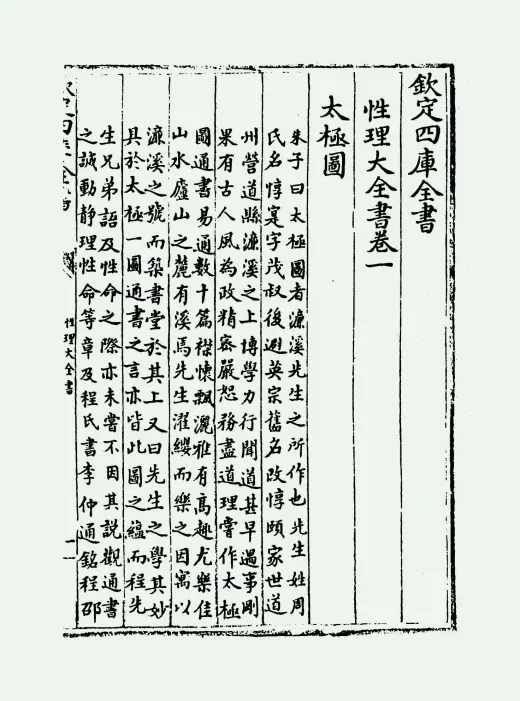 欽定四庫全書
性理大全書卷一
太極圖
朱子曰太極圖者濂溪先生之所作也先生姓周
氏名惇寔字茂叔後避英宗舊名改惇頤家世道
州營道縣濂溪之上博學力行聞道甚早遇事剛
果有古人風為政精密嚴恕務盡道理嘗作太極
圖通書易通數十篇襟懷飄灑雅有高趣尤樂佳
山水廬山之麓有溪焉先生濯纓而樂之因寓以
濂溪之號而築書堂於其上又曰先生之學其妙
具於太極一圖通書之言亦皆此圖之緼而程先
生兄弟語及性命之際亦未嘗不因其說觀通書
之誠動靜理性命等章及程氏書李仲通銘程邵
性理大全書